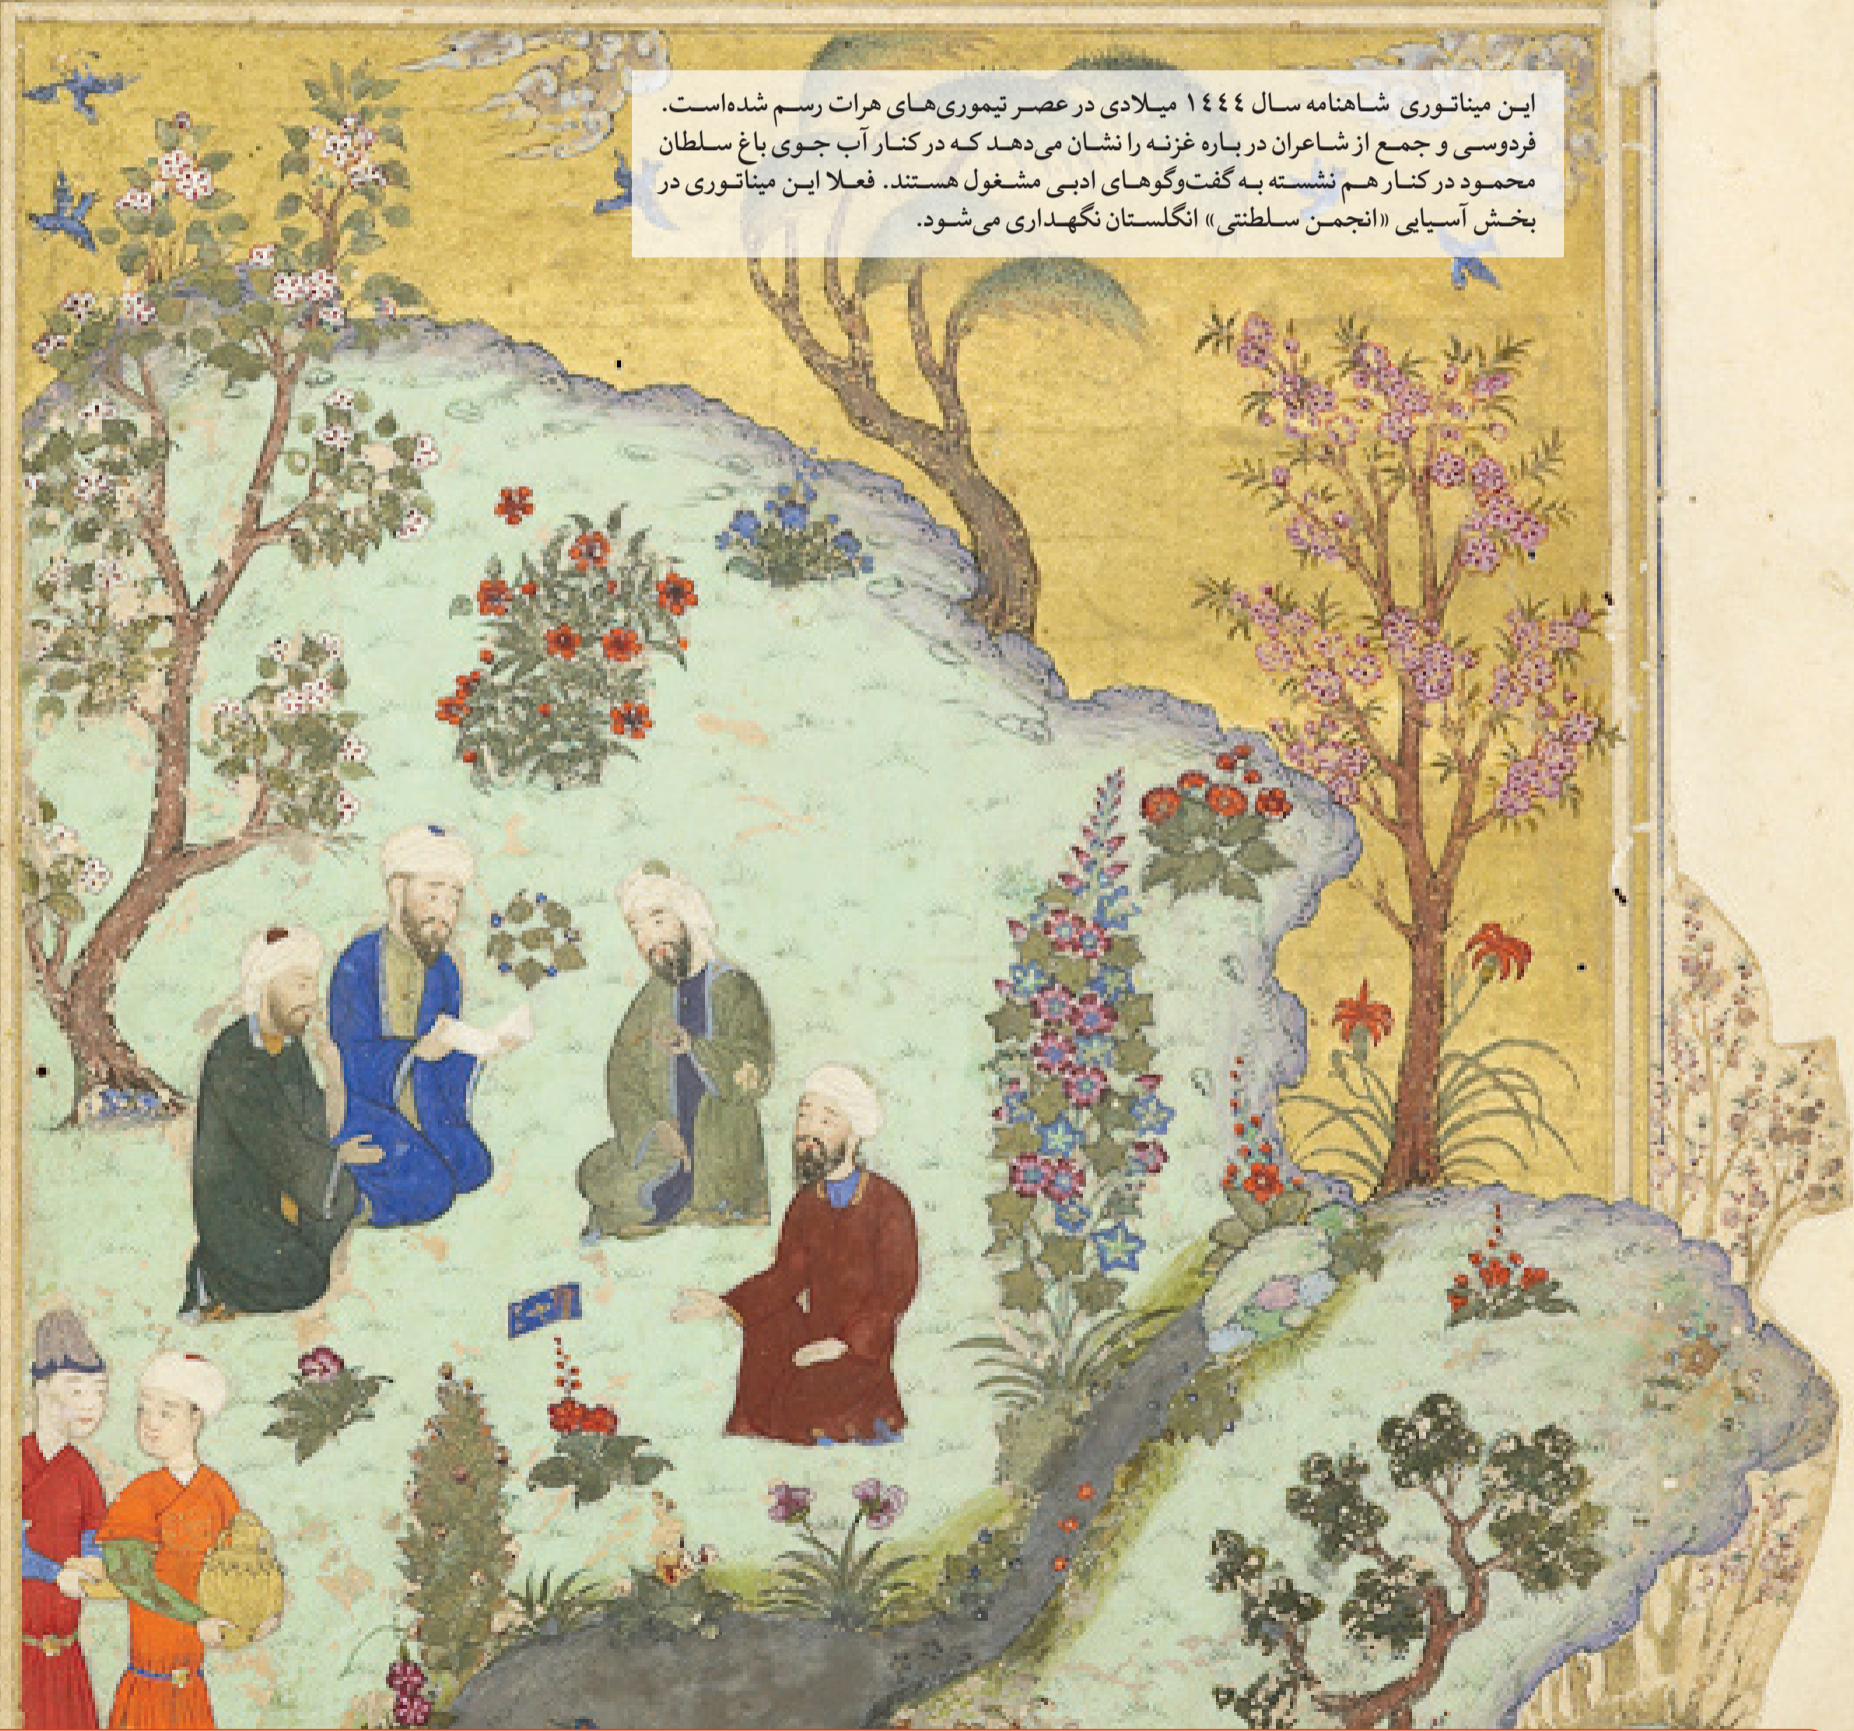 ایـن میناتـوری شـاهنامه سـال ۱٤٤٤ میـلادی در عصـر تیموری‌هـای هرات رسـم شده‌اسـت.
فردوسـی و جمـع از شـاعران در بـاره غزنـه را نشـان می‌دهـد کـه در کنـار آب جـوی باغ سـلطان
محمـود در کنـار هـم نشسـته بـه گفت‌وگوهـای ادبـی مشـغول هسـتند. فعـلا ایـن میناتـوری در
بخـش آسـیایی «انجمـن سـلطنتی» انگلسـتان نگهـداری می‌شـود.